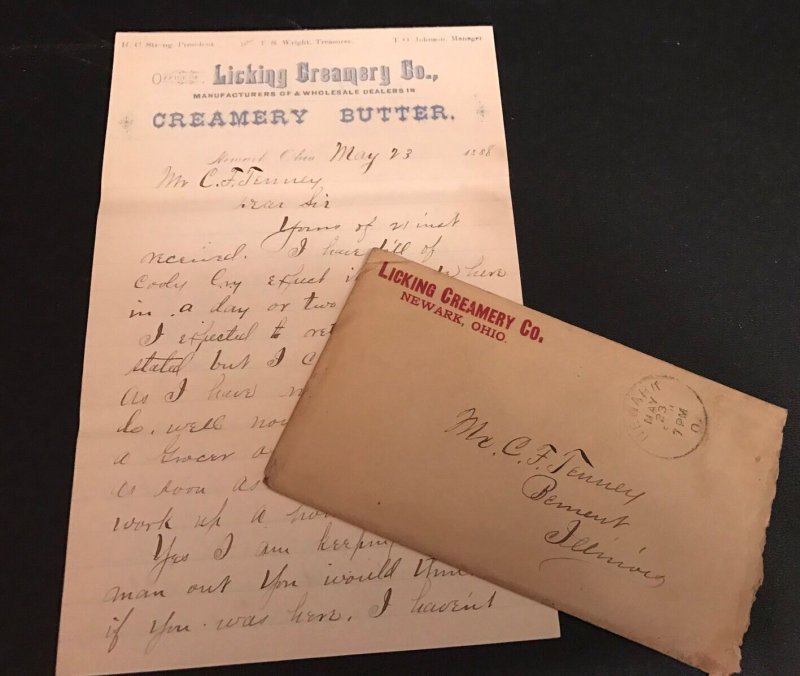 H. C. Strong, President. F. S. Wright, Treasurer. T. O. Johnson, Manager.
Office of Licking Creamery Co.,
MANUFACTURERS OF & WHOLESALE DEALERS IN
CREAMERY BUTTER.
Newark, Ohio May 23 1888
Mr C. F. Tenney
Dear Sir
Yours of 21 inst
received. I have bill of
cooly Cry expect it here
in a day or two
I expected to
stated but I
as I have
do. well
a grocer
as soon as
work up a
Yes I am keeping
man out You would
if you was here. I havent
LICKING CREAMERY CO.
NEWARK, OHIO.
NEWARK
MAY
23
7 PM
O.
Mr. C. F. Tenney
Bement
Illinois